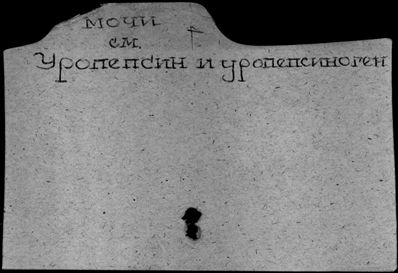 мочи
см.
Уропепсин и уропепсиноген